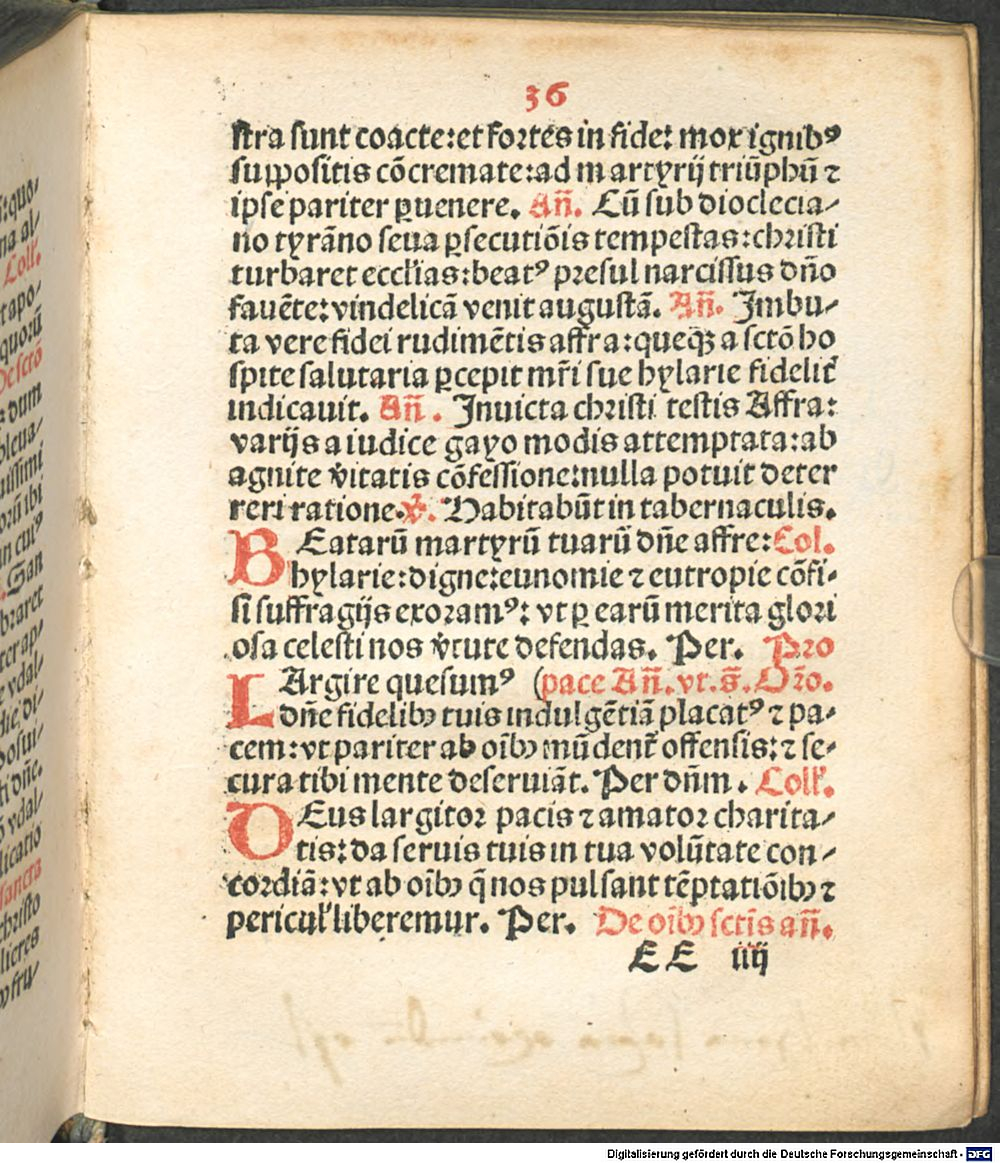 36
stra sunt coacte: et fortes in fide: mox ignibꝰ
suppositis cōcremate: ad martyrij triūphū ⁊
ipse pariter ꝑuenere. Añ. Cū sub dioclecia⸗
no tyrāno seua ꝑsecutiōis tempestas: christi
turbaret eccl'ias: beatꝰ presul narcissus dño
fauēte: vindelicā venit augustā. Añ. Imbu⸗
ta vere fidei rudimētis affra: queqꝫ a sctō ho
spite salutaria ꝑcepit mr̄i sue hylarie fidelit̄
indicauit. Añ. Inuicta christi testis Affra:
varijs a iudice gayo modis attemptata: ab
agnite v̄itatis cōfessione: nulla potuit deter
reri ratione. ꝟ. Habitabūt in tabernaculis.
BEatarū martyrū tuarū dñe affre: Col.
hylarie: digne: eunomie ⁊ eutropie cōfi⸗
si suffragijs exoramꝰ: vt ꝑ earū merita glori
osa celesti nos v̄tute defendas. Per. Pro
LArgire quesumꝰ (pace Añ. vt. s̄. Or̄o.
dñe fidelibꝫ tuis indulgētiā placatꝰ ⁊ pa⸗
cem: vt pariter ab oībꝫ mūdent̄ offensis: ⁊ se⸗
cura tibi mente deseruiāt. Per dñm. Coll'.
DEus largitor pacis ⁊ amator charita⸗
tis: da seruis tuis in tua volūtate con⸗
cordiā: vt ab oībꝫ q̄ nos pulsant tēptatiōibꝫ ⁊
pericul' liberemur. Per. De oībꝫ sctīs añ.
EE iiij
Digitalisierung gefördert durch die Deutsche Forschungsgemeinschaft - DFG